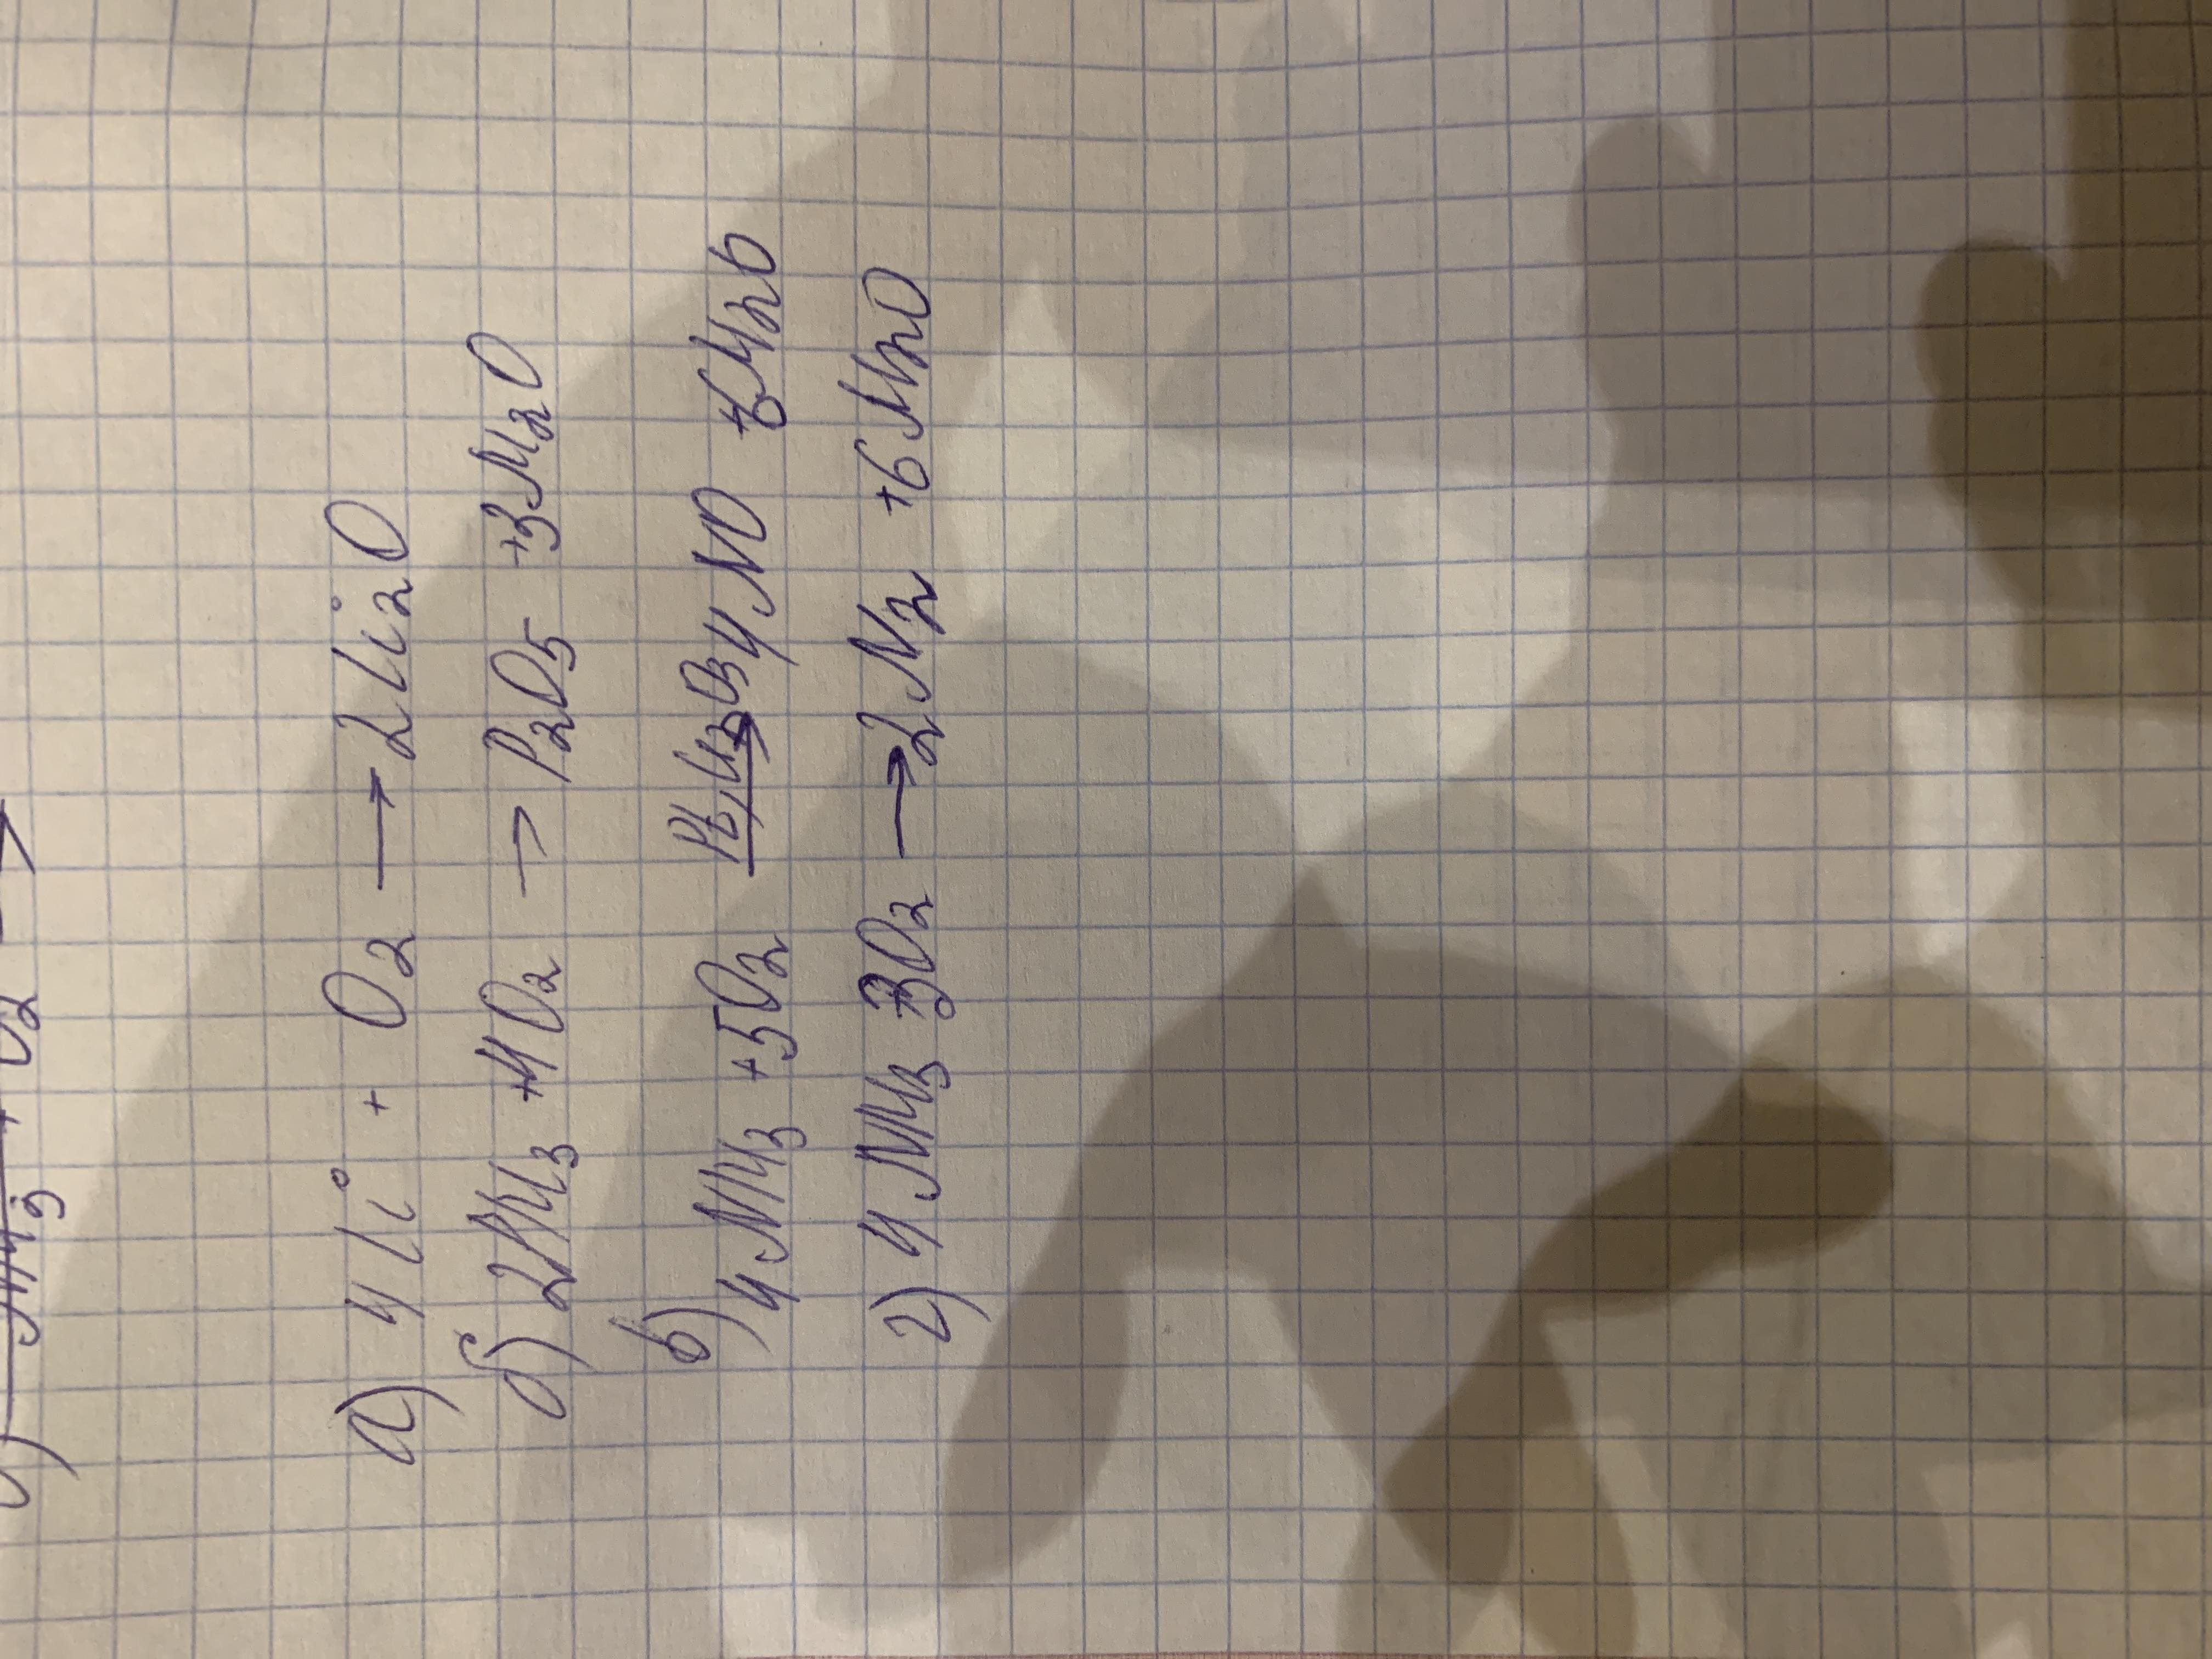 а) 4Li + O₂ → 2Li₂O
б) 2PH₃ + 4O₂ → P₂O₅ + 3H₂O
в) 4NH₃ + 5O₂ → 4NO + 6H₂O
г) 4NH₃ + 3O₂ → 2N₂ + 6H₂O